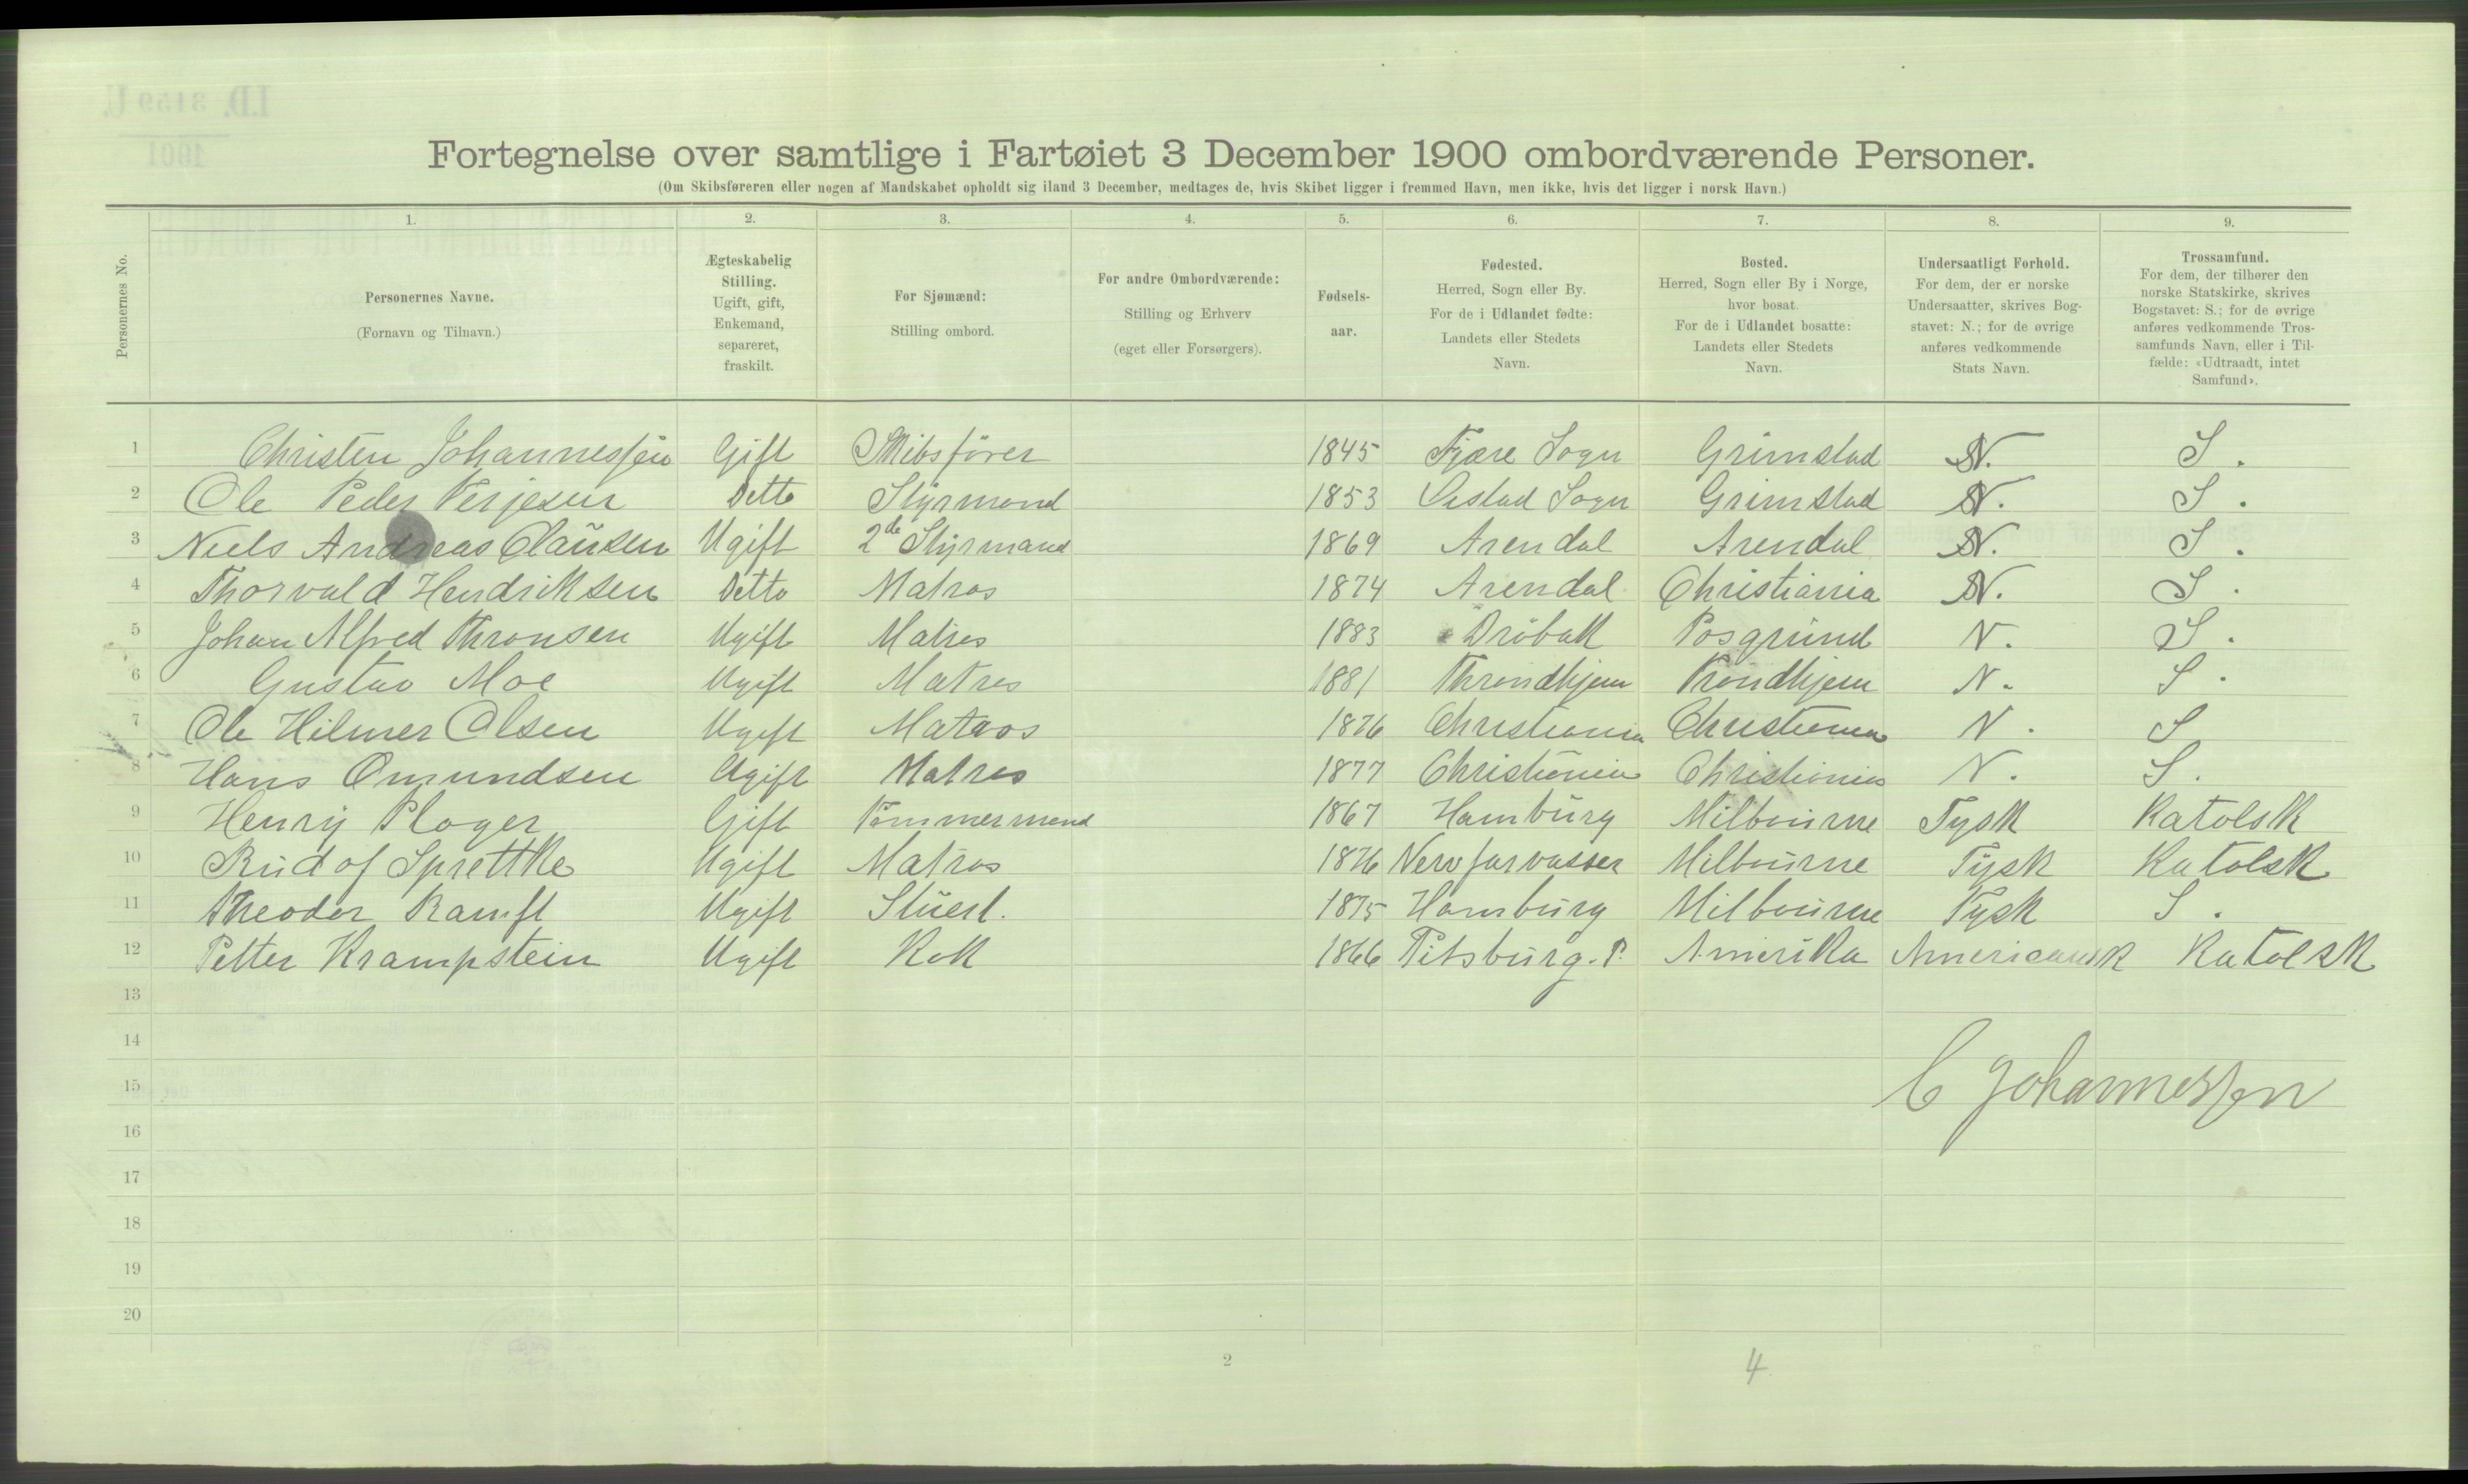 Fortegnelse over samtlige i Fartøiet 3 December 1900 ombordværende Personer.
(Om Skibsføreren eller nogen af Mandskabet opholdt sig iland 3 December, medtages de, hvis Skibet ligger i fremmed Havn, men ikke, hvis det ligger i norsk Havn.)
1. 2. 3. 4. 5. 6. 7. 8. 9.
Personernes No.
Personernes Navne.
(Fornavn og Tilnavn.)
Ægteskabelig
Stilling.
Ugift, gift,
Enkemand,
separeret,
fraskilt.
For Sjømænd:
Stilling ombord.
For andre Ombordværende:
Stilling og Erhverv
(eget eller Forsørgers).
Fødsels-
aar.
Fødested.
Herred, Sogn eller By.
For de i Udlandet fødte:
Landets eller Stedets
Navn.
Bosted.
Herred, Sogn eller By i Norge,
hvor bosat.
For de i Udlandet bosatte:
Landets eller Stedets
Navn.
Undersaatligt Forhold.
For dem, der er norske
Undersaatter, skrives Bog-
stavet: N.; for de øvrige
anføres vedkommende
Stats Navn.
Trossamfund.
For dem, der tilhører den
norske Statskirke, skrives
Bogstavet: S.; for de øvrige
anføres vedkommende Tros-
samfunds Navn, eller i Til-
fælde: «Udtraadt, intet
Samfund».
1 Christen Johannessen Gift Skibsfører 1845 Fjære Sogn Grimstad N. S.
2 Ole Peder Terjesen Ditto Styrmand 1853 Øestad Sogn Grimstad N. S.
3 Niels Andreas Claüsen Ugift 2de Styrmand 1869 Arendal Arendal N. S.
4 Thorvald Hendriksen Ditto Matros 1874 Arendal Christiania N. S.
5 Johan Alfred Thronsen Ugift Matros 1883 Dröbak Posgrund N. S.
6 Gustav Moe Ugift Matros 1881 Throndhjem Trondhjem N. S.
7 Ole Hilmer Olsen Ugift Matros 1876 Christiania Christiania N. S
8 Hans Omundsen Ugift Matros 1877 Christiania Christiania N. S.
9 Henry Ploger Gift Tömmermand 1867 Hambürg Milbourne Tysk Katolsk
10 Rudof Sprettke Ugift Matros 1876 Newfarvasser Milbourne Tysk Katolsk
11 Theodor Ramft Ugift Stüert. 1875 Hambürg Milbourne Tysk S.
12 Petter Krampstein Ugift Kok 1866 Pitsbürg. P. Amerika Americansk Katolsk
13
14
15 C Johannessen
16
17
18
19
20
2
4